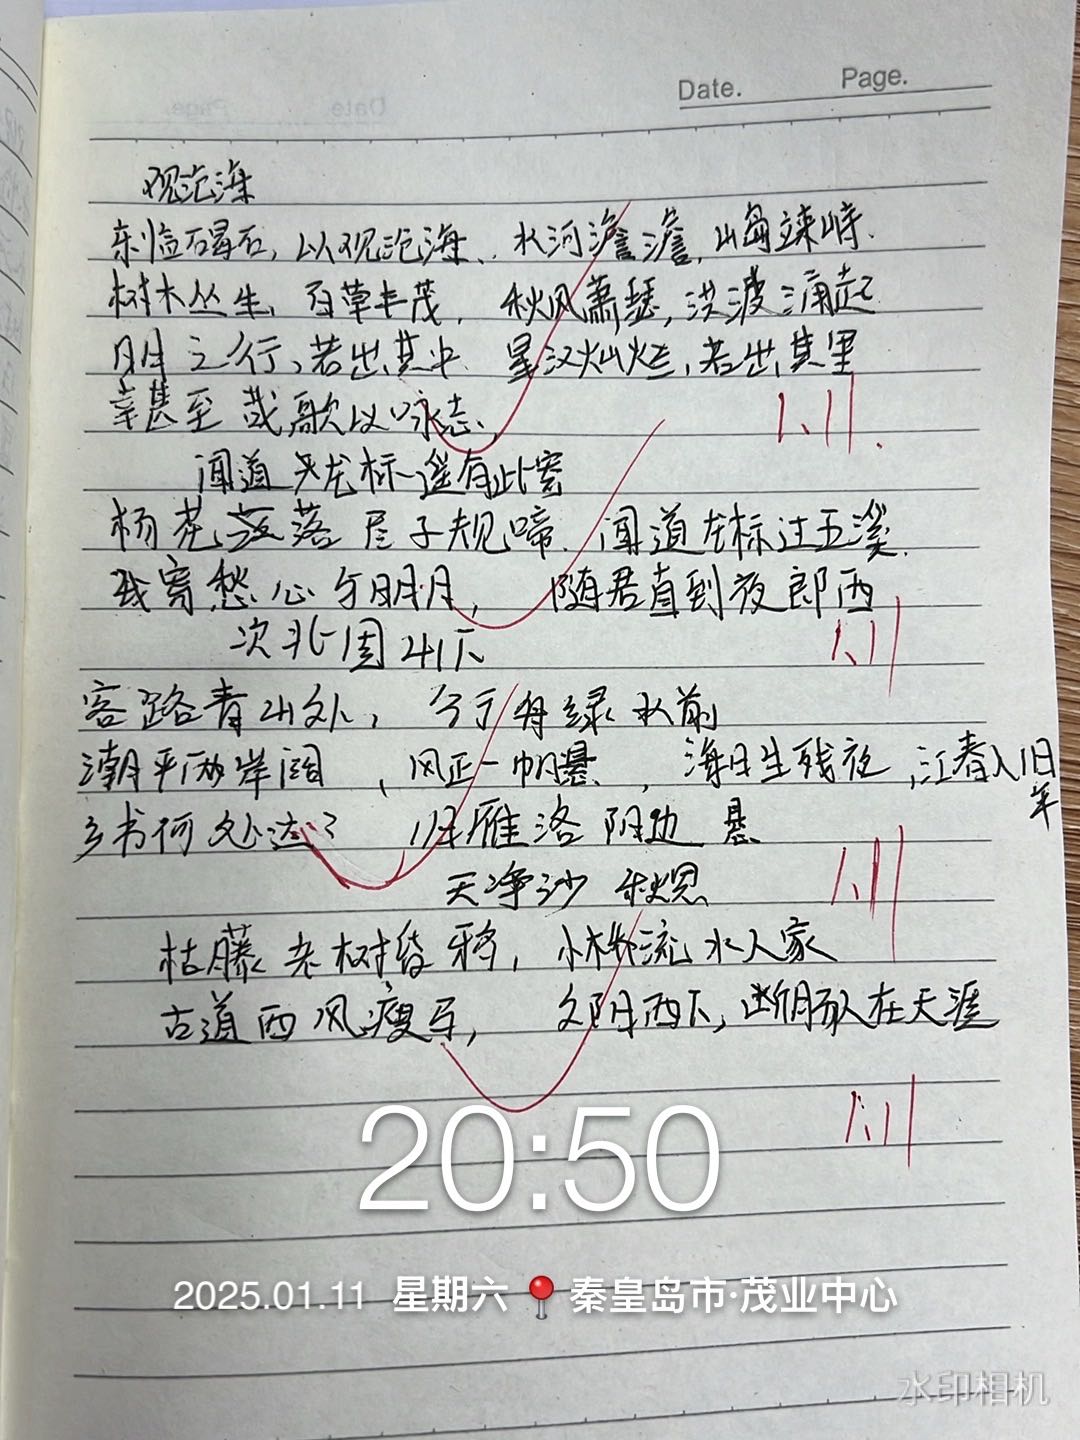 Date. Page.
观沧海
东临碣石，以观沧海、水河澹澹，山岛竦峙．
树木丛生，百草丰茂，秋风萧瑟，洪波涌起
日月之行，若出其中．星汉灿烂，若出其里
幸甚至哉歌以咏志，
1.11.
闻道 龙标遥有此寄
杨花 落尽子规啼．闻道龙标过五溪．
我寄愁心与明月，随君直到夜郎西
1.11
次北固山下
客路青山外，行舟绿水前
潮平两岸阔，风正一帆悬，海日生残夜，江春入旧
年
乡书何处达？归雁洛阳边 悬
1.11
天净沙 秋思
枯藤老树昏鸦，小桥流水人家
古道西风瘦马，夕阳西下，断肠人在天涯
1.11
20:50
2025.01.11 星期六 秦皇岛市·茂业中心
水印相机